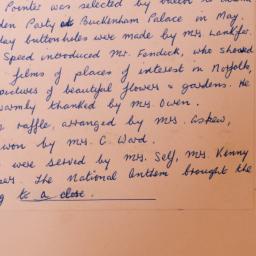 Pointer was selected by ballot to attend
den Party at Buckenham Palace in May.
day buttonholes were made by Mrs Lankfer.
Speed introduced Mr. Fendick, who showed
films of places of interest in Norfolk,
pictures of beautiful flowers & gardens. He
warmly thanked by Mrs. Owen.
raffle, arranged by Mrs. Askew,
won by Mrs. C. Ward.
were served by Mrs. Self, Mrs. Kenny
The National Anthem brought the
to a close.